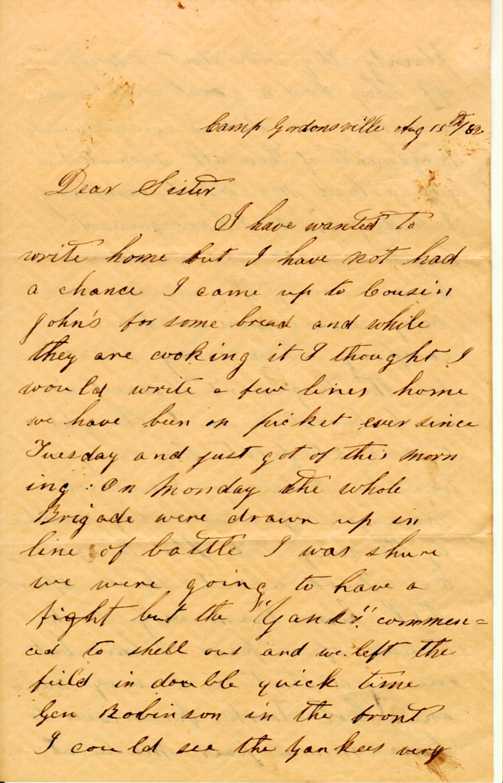 Camp Gordonsville Aug 15th/62
Dear Sister
I have wanted to
write home but I have not had
a chance I came up to Cousin
John's for some bread and while
they are cooking it I thought I
would write a few lines home
we have been on picket ever since
Tuesday and just got of this morn
ing : On Monday the whole
Brigade were drawn up in
line of battle I was shure
we were going to have a
fight but the "Yanks" commen=
ced to shell out and we left the
field in double quick time
Gen Robinson in the front
I could see the Yankees very